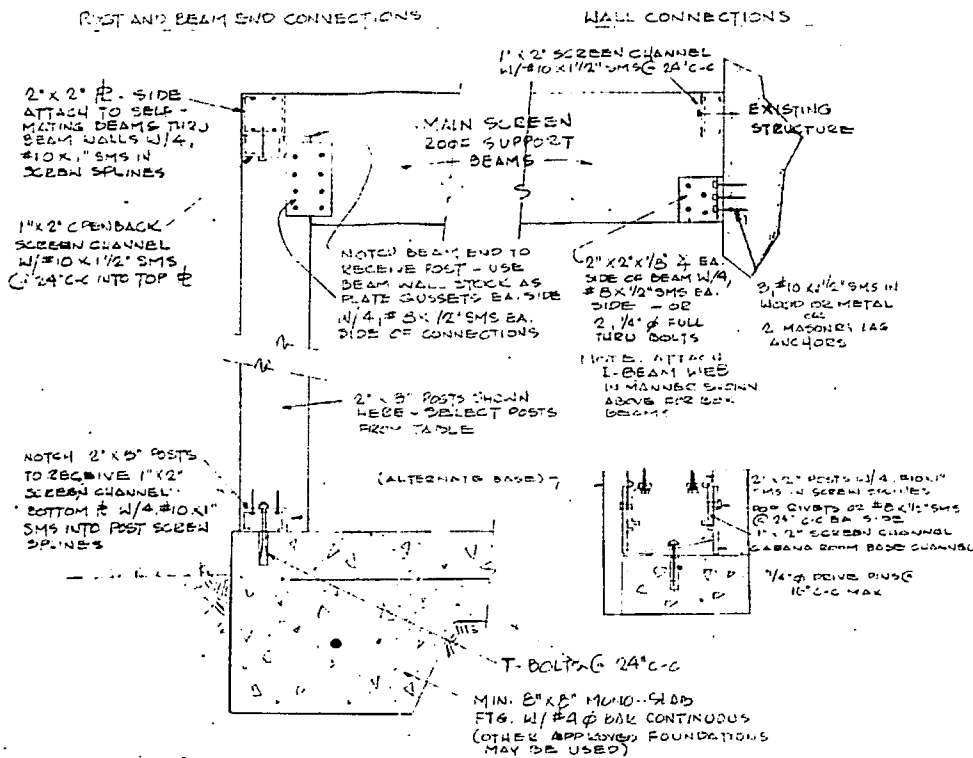 POST AND BEAM END CONNECTIONS
WALL CONNECTIONS
1" X 2" SCREEN CHANNEL
W/#10 X 1 1/2" SMS @ 24" C-C
2" X 2" PL - SIDE
ATTACH TO SELF-
MATING BEAMS THRU
BEAM WALLS W/4,
#10 X 1" SMS IN
SCREW SPLINES
MAIN SCREEN
ROOF SUPPORT
BEAMS
EXISTING
STRUCTURE
1" X 2" OPENBACK
SCREEN CHANNEL
W/#10 X 1 1/2" SMS
@ 24" C-C INTO TOP PL
NOTCH BEAM END TO
RECEIVE POST - USE
BEAM WALL STOCK AS
PLATE GUSSETS EA. SIDE
W/4, #8 X 1/2" SMS EA.
SIDE OF CONNECTIONS
2" X 2" X 1/8" ∠ EA.
SIDE OF BEAM W/4,
#8 X 1/2" SMS EA.
SIDE - OR
2, 1/4" φ FULL
THRU BOLTS
NOTE: ATTACH
I-BEAM WEB
IN MANNER SHOWN
ABOVE FOR BOX
BEAMS
3, #10 X 1/2" SMS IN
WOOD OR METAL
OR
2 MASONRY LAG
ANCHORS
2" X 3" POSTS SHOWN
HERE - SELECT POSTS
FROM TABLE
NOTCH 2" X 3" POSTS
TO RECEIVE 1" X 2"
SCREEN CHANNEL
BOTTOM PL W/4, #10 X 1"
SMS INTO POST SCREW
SPLINES
(ALTERNATE BASE)
2" X 2" POSTS W/4, #10 X 1"
SMS IN SCREW SPLINES
POP RIVETS OR #8 X 1/2" SMS
@ 24" C-C EA. SIDE
1" X 2" SCREEN CHANNEL
CABANA ROOM BASE CHANNEL
1/4" φ DRIVE PINS @
C-C MAX
T-BOLTS @ 24" C-C
MIN. 8" X 8" MONO-SLAB
FTG. W/ #4 φ BAR CONTINUOUS
(OTHER APPROVED FOUNDATIONS
MAY BE USED)